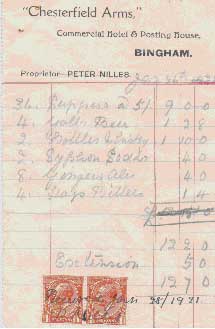 "Chesterfield Arms,"
Commercial Hotel & Posting House,
BINGHAM.
Proprietor PETER NILLES.
Jan
36 Suppers @ 5/- 9 0 0
4 Galls Beer 1 2 8
2 Bottles Whisky 1 10 0
Syphon Sodas 4 0
8 Gingers Ales 4 0
4 1 4
12 2 0
Extension 5 0
12 7 0
Received Jan 28/1921